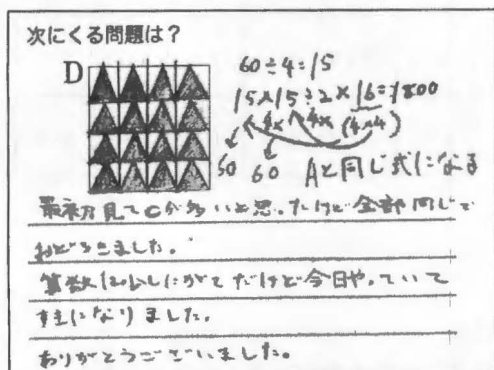 次にくる問題は？
D
60÷4=15
15×15÷2×16=1800
4× 4× (4×4)
60 60 Aと同じ式になる
最初見てCが多いと思ったけど全部同じで
おどろきました。
算数は少しにがてだけど今日やっていて
すきになりました。
ありがとうございました。